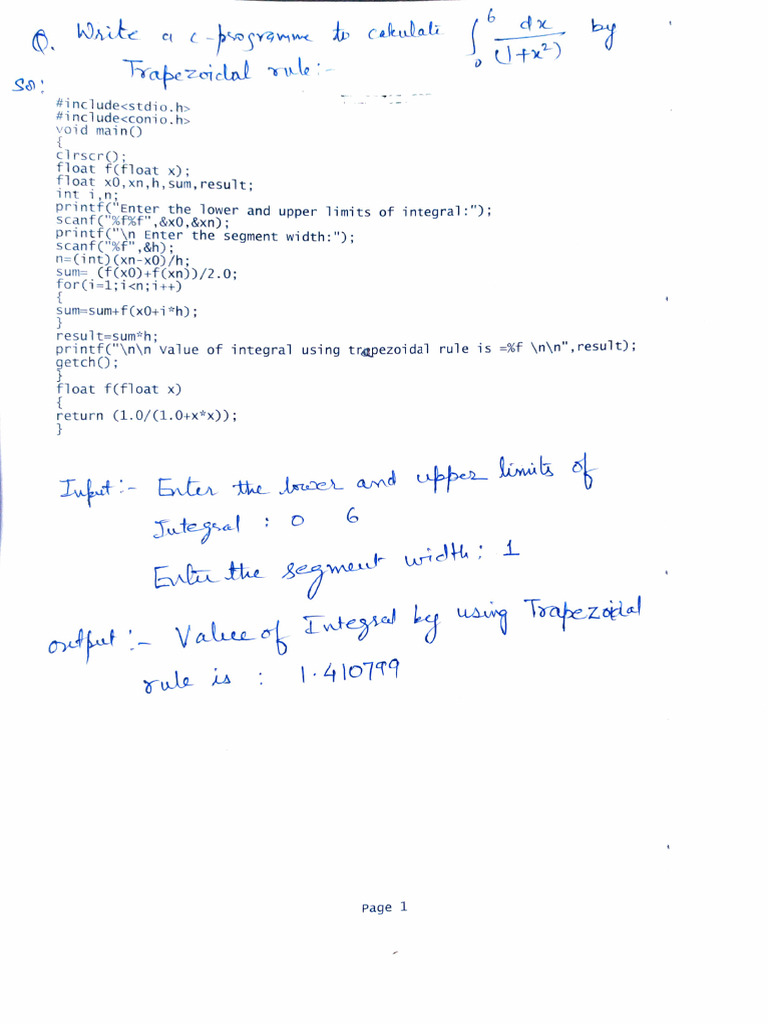 Q. Write a c-programme to calculate ∫₀⁶ dx/(1+x²) by
Trapezoidal rule:-
Sol:
#include<stdio.h>
#include<conio.h>
void main()
{
clrscr();
float f(float x);
float x0,xn,h,sum,result;
int i,n;
printf("Enter the lower and upper limits of integral:");
scanf("%f%f",&x0,&xn);
printf("\n Enter the segment width:");
scanf("%f",&h);
n=(int)(xn-x0)/h;
sum= (f(x0)+f(xn))/2.0;
for(i=1;i<n;i++)
{
sum=sum+f(x0+i*h);
}
result=sum*h;
printf("\n\n Value of integral using trapezoidal rule is =%f \n\n",result);
getch();
}
float f(float x)
{
return (1.0/(1.0+x*x));
}
Input:- Enter the lower and upper limits of
Integral : 0 6
Enter the segment width: 1
output:- Value of Integral by using Trapezoidal
rule is : 1.410799
Page 1